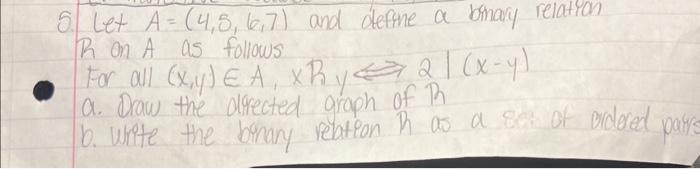 5. Let A = (4,5,6,7) and define a binary relation
R on A as follows
For all (x,y) ∈ A, x R y ⟺ 2 | (x-y)
a. Draw the directed graph of R
b. Write the binary relation R as a set of ordered pairs